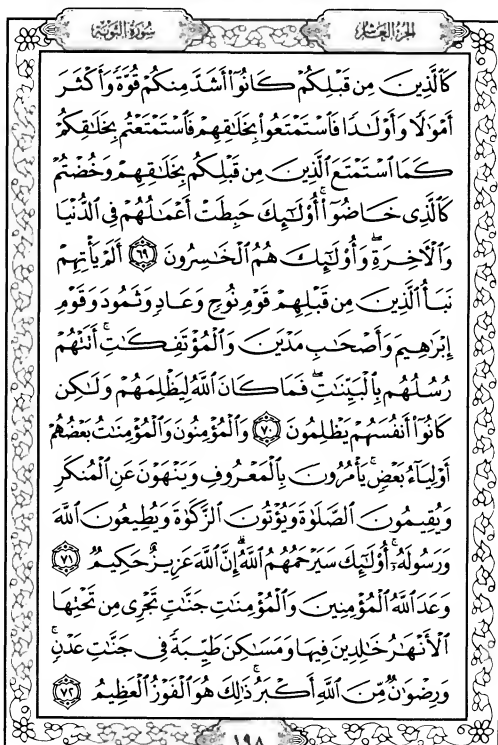 الجزء العاشر سورة التوبة
كَٱلَّذِينَ مِن قَبْلِكُمْ كَانُوٓا۟ أَشَدَّ مِنكُمْ قُوَّةً وَأَكْثَرَ
أَمْوَٰلًا وَأَوْلَـٰدًا فَٱسْتَمْتَعُوا۟ بِخَلَـٰقِهِمْ فَٱسْتَمْتَعْتُم بِخَلَـٰقِكُمْ
كَمَا ٱسْتَمْتَعَ ٱلَّذِينَ مِن قَبْلِكُم بِخَلَـٰقِهِمْ وَخُضْتُمْ
كَٱلَّذِى خَاضُوٓا۟ ۚ أُو۟لَـٰٓئِكَ حَبِطَتْ أَعْمَـٰلُهُمْ فِى ٱلدُّنْيَا
وَٱلْـَٔاخِرَةِ ۖ وَأُو۟لَـٰٓئِكَ هُمُ ٱلْخَـٰسِرُونَ ٦٩ أَلَمْ يَأْتِهِمْ
نَبَأُ ٱلَّذِينَ مِن قَبْلِهِمْ قَوْمِ نُوحٍ وَعَادٍ وَثَمُودَ وَقَوْمِ
إِبْرَٰهِيمَ وَأَصْحَـٰبِ مَدْيَنَ وَٱلْمُؤْتَفِكَـٰتِ ۚ أَتَتْهُمْ
رُسُلُهُم بِٱلْبَيِّنَـٰتِ ۖ فَمَا كَانَ ٱللَّهُ لِيَظْلِمَهُمْ وَلَـٰكِن
كَانُوٓا۟ أَنفُسَهُمْ يَظْلِمُونَ ٧٠ وَٱلْمُؤْمِنُونَ وَٱلْمُؤْمِنَـٰتُ بَعْضُهُمْ
أَوْلِيَآءُ بَعْضٍ ۚ يَأْمُرُونَ بِٱلْمَعْرُوفِ وَيَنْهَوْنَ عَنِ ٱلْمُنكَرِ
وَيُقِيمُونَ ٱلصَّلَوٰةَ وَيُؤْتُونَ ٱلزَّكَوٰةَ وَيُطِيعُونَ ٱللَّهَ
وَرَسُولَهُۥٓ ۚ أُو۟لَـٰٓئِكَ سَيَرْحَمُهُمُ ٱللَّهُ ۗ إِنَّ ٱللَّهَ عَزِيزٌ حَكِيمٌ ٧١
وَعَدَ ٱللَّهُ ٱلْمُؤْمِنِينَ وَٱلْمُؤْمِنَـٰتِ جَنَّـٰتٍ تَجْرِى مِن تَحْتِهَا
ٱلْأَنْهَـٰرُ خَـٰلِدِينَ فِيهَا وَمَسَـٰكِنَ طَيِّبَةً فِى جَنَّـٰتِ عَدْنٍ ۚ
وَرِضْوَٰنٌ مِّنَ ٱللَّهِ أَكْبَرُ ۚ ذَٰلِكَ هُوَ ٱلْفَوْزُ ٱلْعَظِيمُ ٧٢
١٩٨